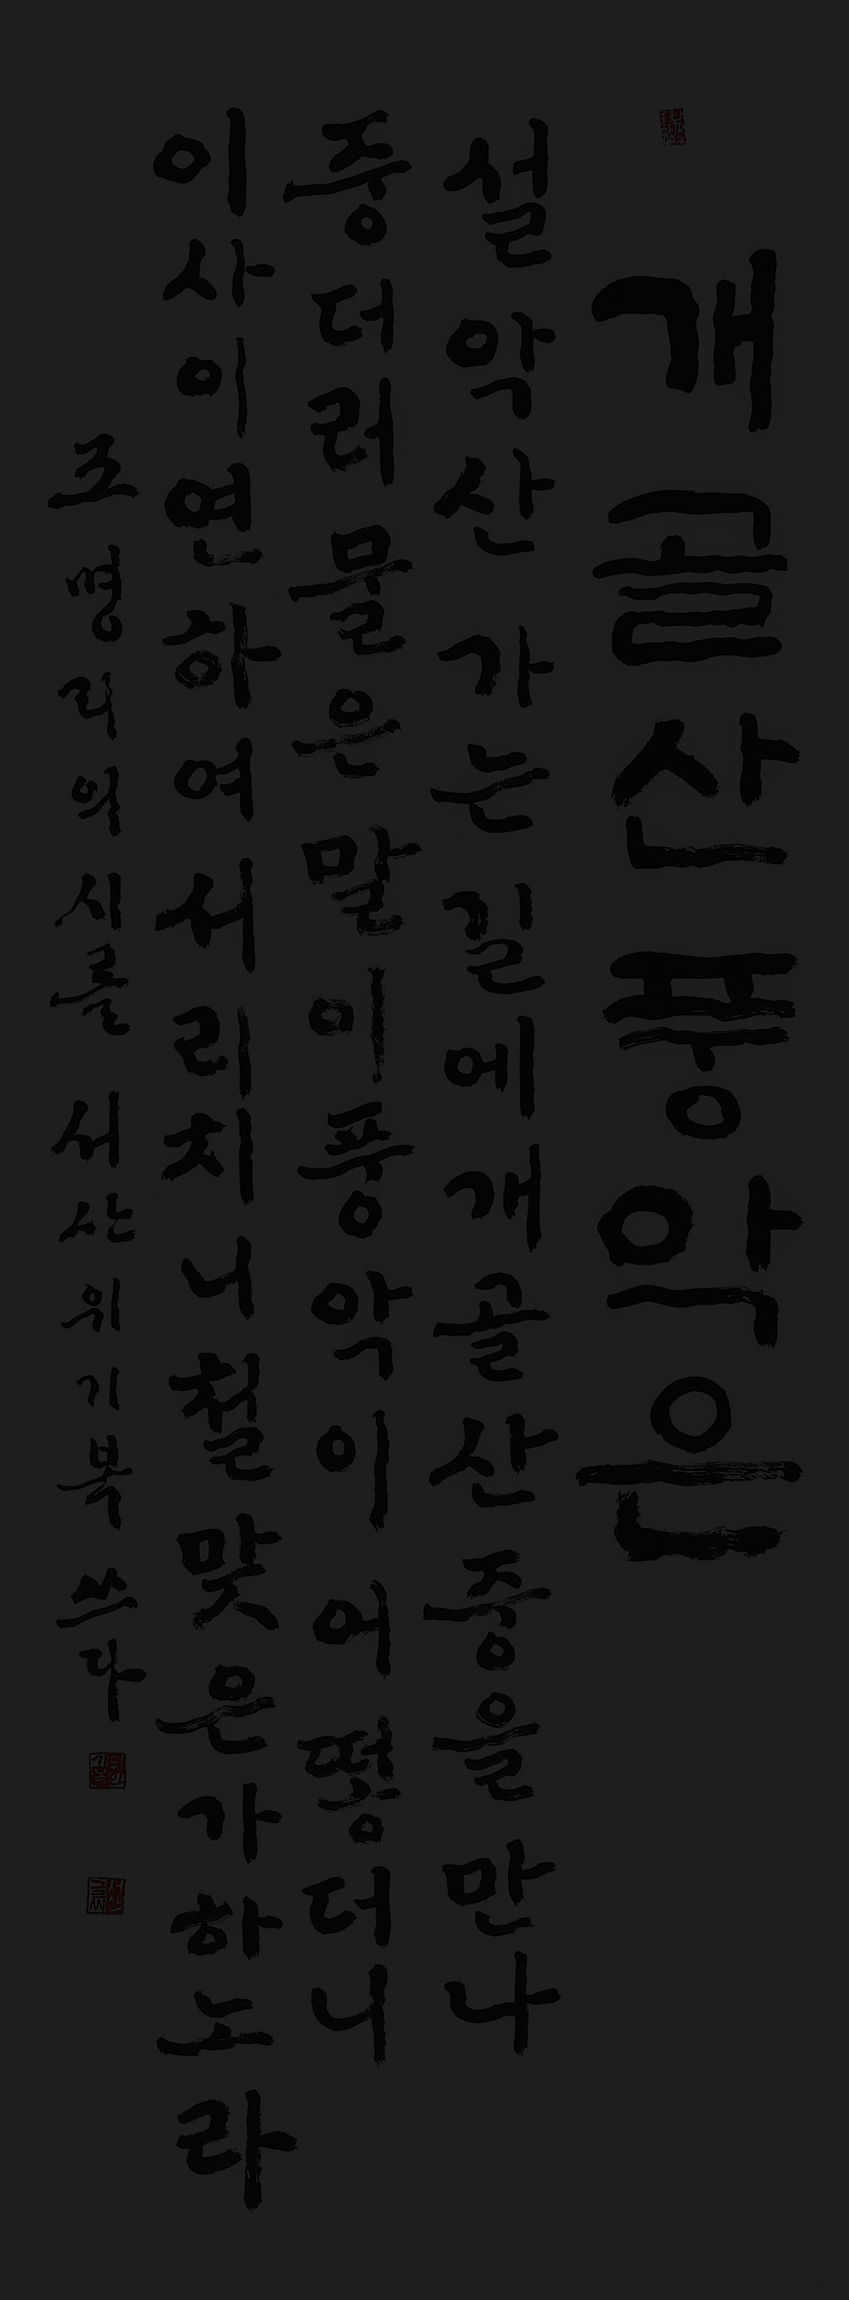 개골산풍악은
설악산 가는 길에 개골산 중을 만나
중더러 물은 말이 풍악이 어떻더니
이사이 연하여 서리치니 철맞은가 하노라
조명리의 시를 서산 위기복 쓰다